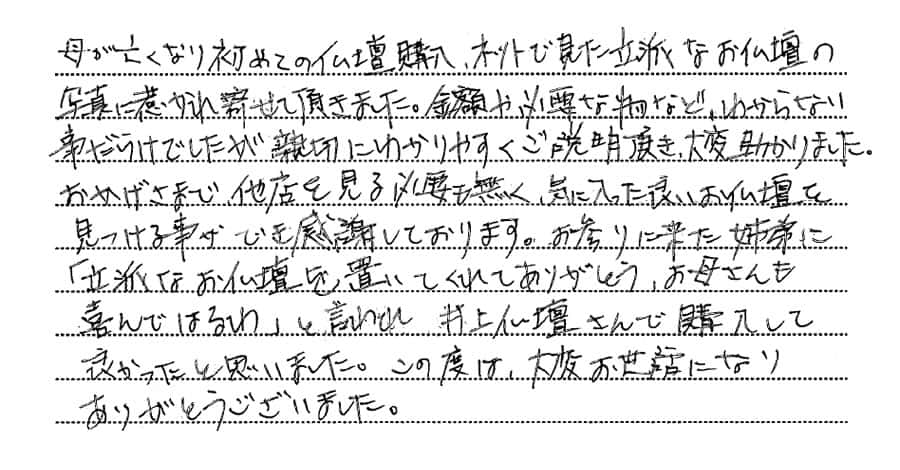 母が亡くなり初めての仏壇購入、ネットで見た立派なお仏壇の
写真に惹かれ寄せて頂きました。金額や必要な物など、わからない
事だらけでしたが親切にわかりやすくご説明頂き、大変助かりました。
おかげさまで他店を見る必要も無く、気に入った良いお仏壇を
見つける事ができ感謝しております。お参りに来た姉弟に
「立派なお仏壇を置いてくれてありがとう、お母さんも
喜んではるわ」と言われ 井上仏壇さんで購入して
良かったと思いました。この度は、大変お世話になり
ありがとうございました。